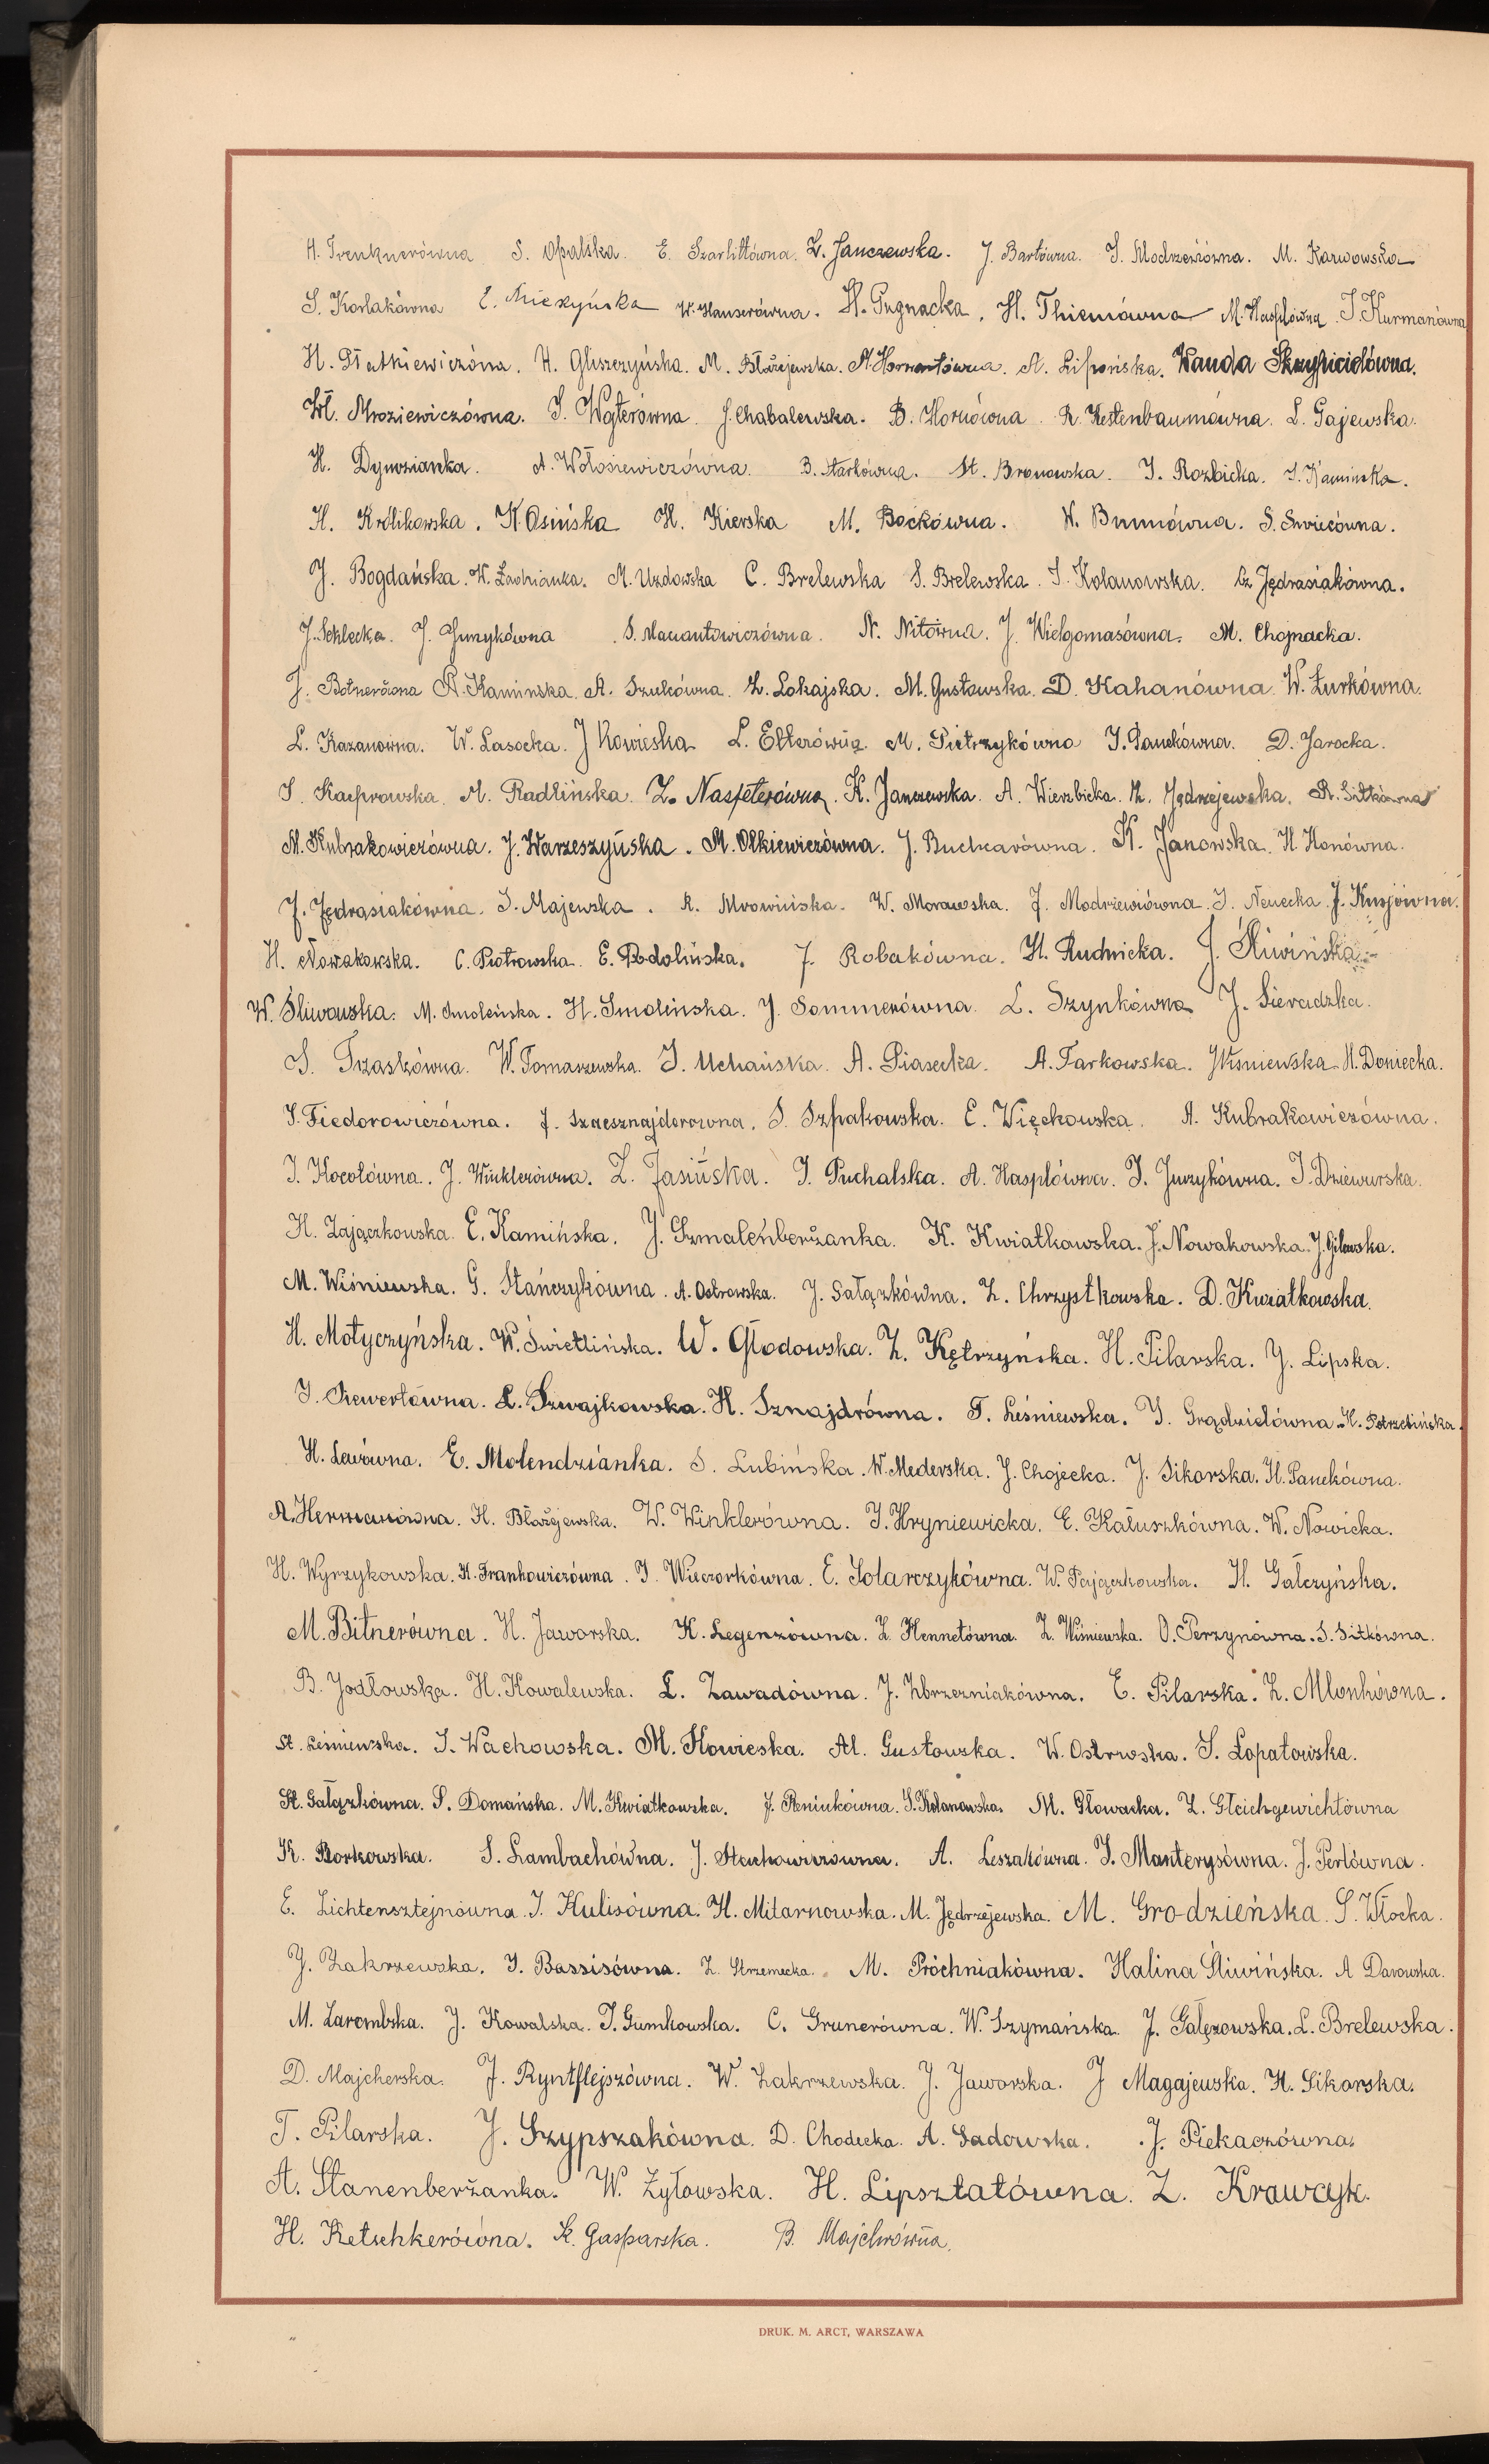 H. Trenknerówna S. Opalska. E. Szarlittówna. Z. Janczewska. J. Bartówna. I. Modrzewiówna. M. Karwowska
S. Korlakówna W. Hanserówna. H. Pugnacka. H. Thiemówna M. Hasplówna. I. Kurmanówna
H. Płatkiewiczówna. H. Gliszczyńska. M. Błażejewska. A. Lipońska. Wanda
Wł. Mroziewiczówna. I. Węterówna. J. Chabalewska. B. Hornówna. R. Kestenbaumówna. L. Gajewska.
H. Dymozianka. A. Wołosiewiczówna. B. Starkówna. St. Bronowska. I. Rozbicka. I. Kamińska.
H. Królikowska. K. Osińska H. Kierska M. Bockówna. W. Brunówna. S.
J. Bogdańska. M. Uzdowska C. Brelewska S. Brelewska. I. Kolanowska. Cz Jędrasiakówna.
J. Seklecka. J. Gunzykówna S. Maciantowiczówna. N. Nitówna. J. Wielgomasówna. M. Chojnacka.
J. Botnerówna A. Kamińska. A. Szukówna. Z. Lokajska. M. Gustowska. D. Kahanówna W. Żurkówna.
L. Kazanówna. W. Lasocka. J Kowieska L. Elterówna. M. Pietrzykówna I. Panekówna. D. Jarocka.
S. Kacprowska. M. Radlińska. Z. Naspeterówna. K. Janczewska. A. Wierzbicka. M. Jędrzejewska. R. Sitkówna
M. Kubrakowiczówna. J. Warzeszyńska. M. Olkiewiczówna. J. Buchcarówna. K. Janowska. H. Honówna.
J. Jędrasiakówna. I. Majewska. R. Mrowińska. W. Morawska. J. Modrzewiówna. I. Nenecka. J.
H. Nowakowska. C. Piotrowska. E. Podolińska. J. Robakówna. H. Rudnicka. J. Śliwińska.
W. Śliwowska. M. Smoleńska. H. Smolińska. J. Sommerówna. L. Szynkówna J. Sieradzka.
S. Trzaskówna. W. Tomaszewska. I. Uchańska. A. Piasecka. A. Tarkowska. J Wiśniewska. H. Doniecka.
I. Fiedorowiczówna. J. Szaesznajderowna. S. Szpakowska. E. Więckowska. A. Kubrakowiczówna.
I. Kocotówna. J. Winklerówna. Z. Jasińska. I. Puchalska. A. Hasplówna. I. Juszykówna. I. Dziewurska.
H. Zajączkowska. E. Kamińska. J. Szmalenberżanka. K. Kwiatkowska. J. Nowakowska. J. Gilewska.
M. Wiśniewska. G. Stańczykówna. A. Ostrowska. J. Sałązkówna. Z. Chrzystkowska. D. Kwiatkowska.
H. Motyczyńska. W. Świetlińska. W. Głodowska. Z. Kętrzyńska. H. Pilarska. J. Lipska.
I. Siewertówna. L. Szwajkowska. H. Sznajdrówna. T. Leśniewska. I. Grądzielówna. H. Potrzebińska.
H. Lewówna. E. Molendzianka. S. Lubińska. W. Mederska. J. Chojecka. J. Sikorska. H. Panekówna.
A. Hermanówna. H. Błażejewska. W. Winklerówna. I. Hryniewicka. E. Kałuszkówna. W. Nowicka.
H. Wyrzykowska. H. Frankowiczówna. I. Wieczorkówna. E. Solarczykówna. W. Zajączkowska. H. Gałczyńska.
M. Bitnerówna. H. Jaworska. K. Legenzówna. Z. Hennetówna. Z. Wiśniewska. O. Perzynówna. S. Sitkówna.
B. Jodłowska. H. Kowalewska. L. Zawadówna. J. Zbrzezniakówna. E. Pilarska. Z. Mlonkówna.
St. Leśniewska. I. Wachowska. M. Kowieska. Al. Gustowska. W. Ostrowska. S. Łopatowska.
St. Gałązkówna. S. Domańska. M. Kwiatkowska. J. Reniukówna. S. Kolanowska. M. Głowacka. Z. Gleichgewichtówna
K. Borkowska. S. Lambachówna. J. Stachowiczówna. A. Leszakówna. I. Manterysówna. J. Perlówna.
E. Lichtensztejnówna. I. Kulisówna. H. Mitarnowska. M. Jędrzejewska. M. Grodzieńska. S. Włocka.
J. Zakrzewska. I. Bassisówna. Z. Strzemecka. M. Próchniakówna. Halina Śliwińska. A Darowska.
M. Zarembska. J. Kowalska. I. Gumkowska. C. Grunerówna. W. Szymańska. J. Gałęzowska. L. Brelewska.
D. Majcherska. J. Ryntflejszówna. W. Zakrzewska. J. Jaworska. J Magajewska. H. Sikorska.
T. Pilarska. J. Szypszakówna. D. Chodecka. A. Sadowska. J. Piekaczówna.
A. Stanenberżanka. W. Żyłowska. H. Lipsztatówna. Z. Krawczyk.
H. Retschkerówna. K. Gasparska. B. Majchrówna.
DRUK. M. ARCT, WARSZAWA